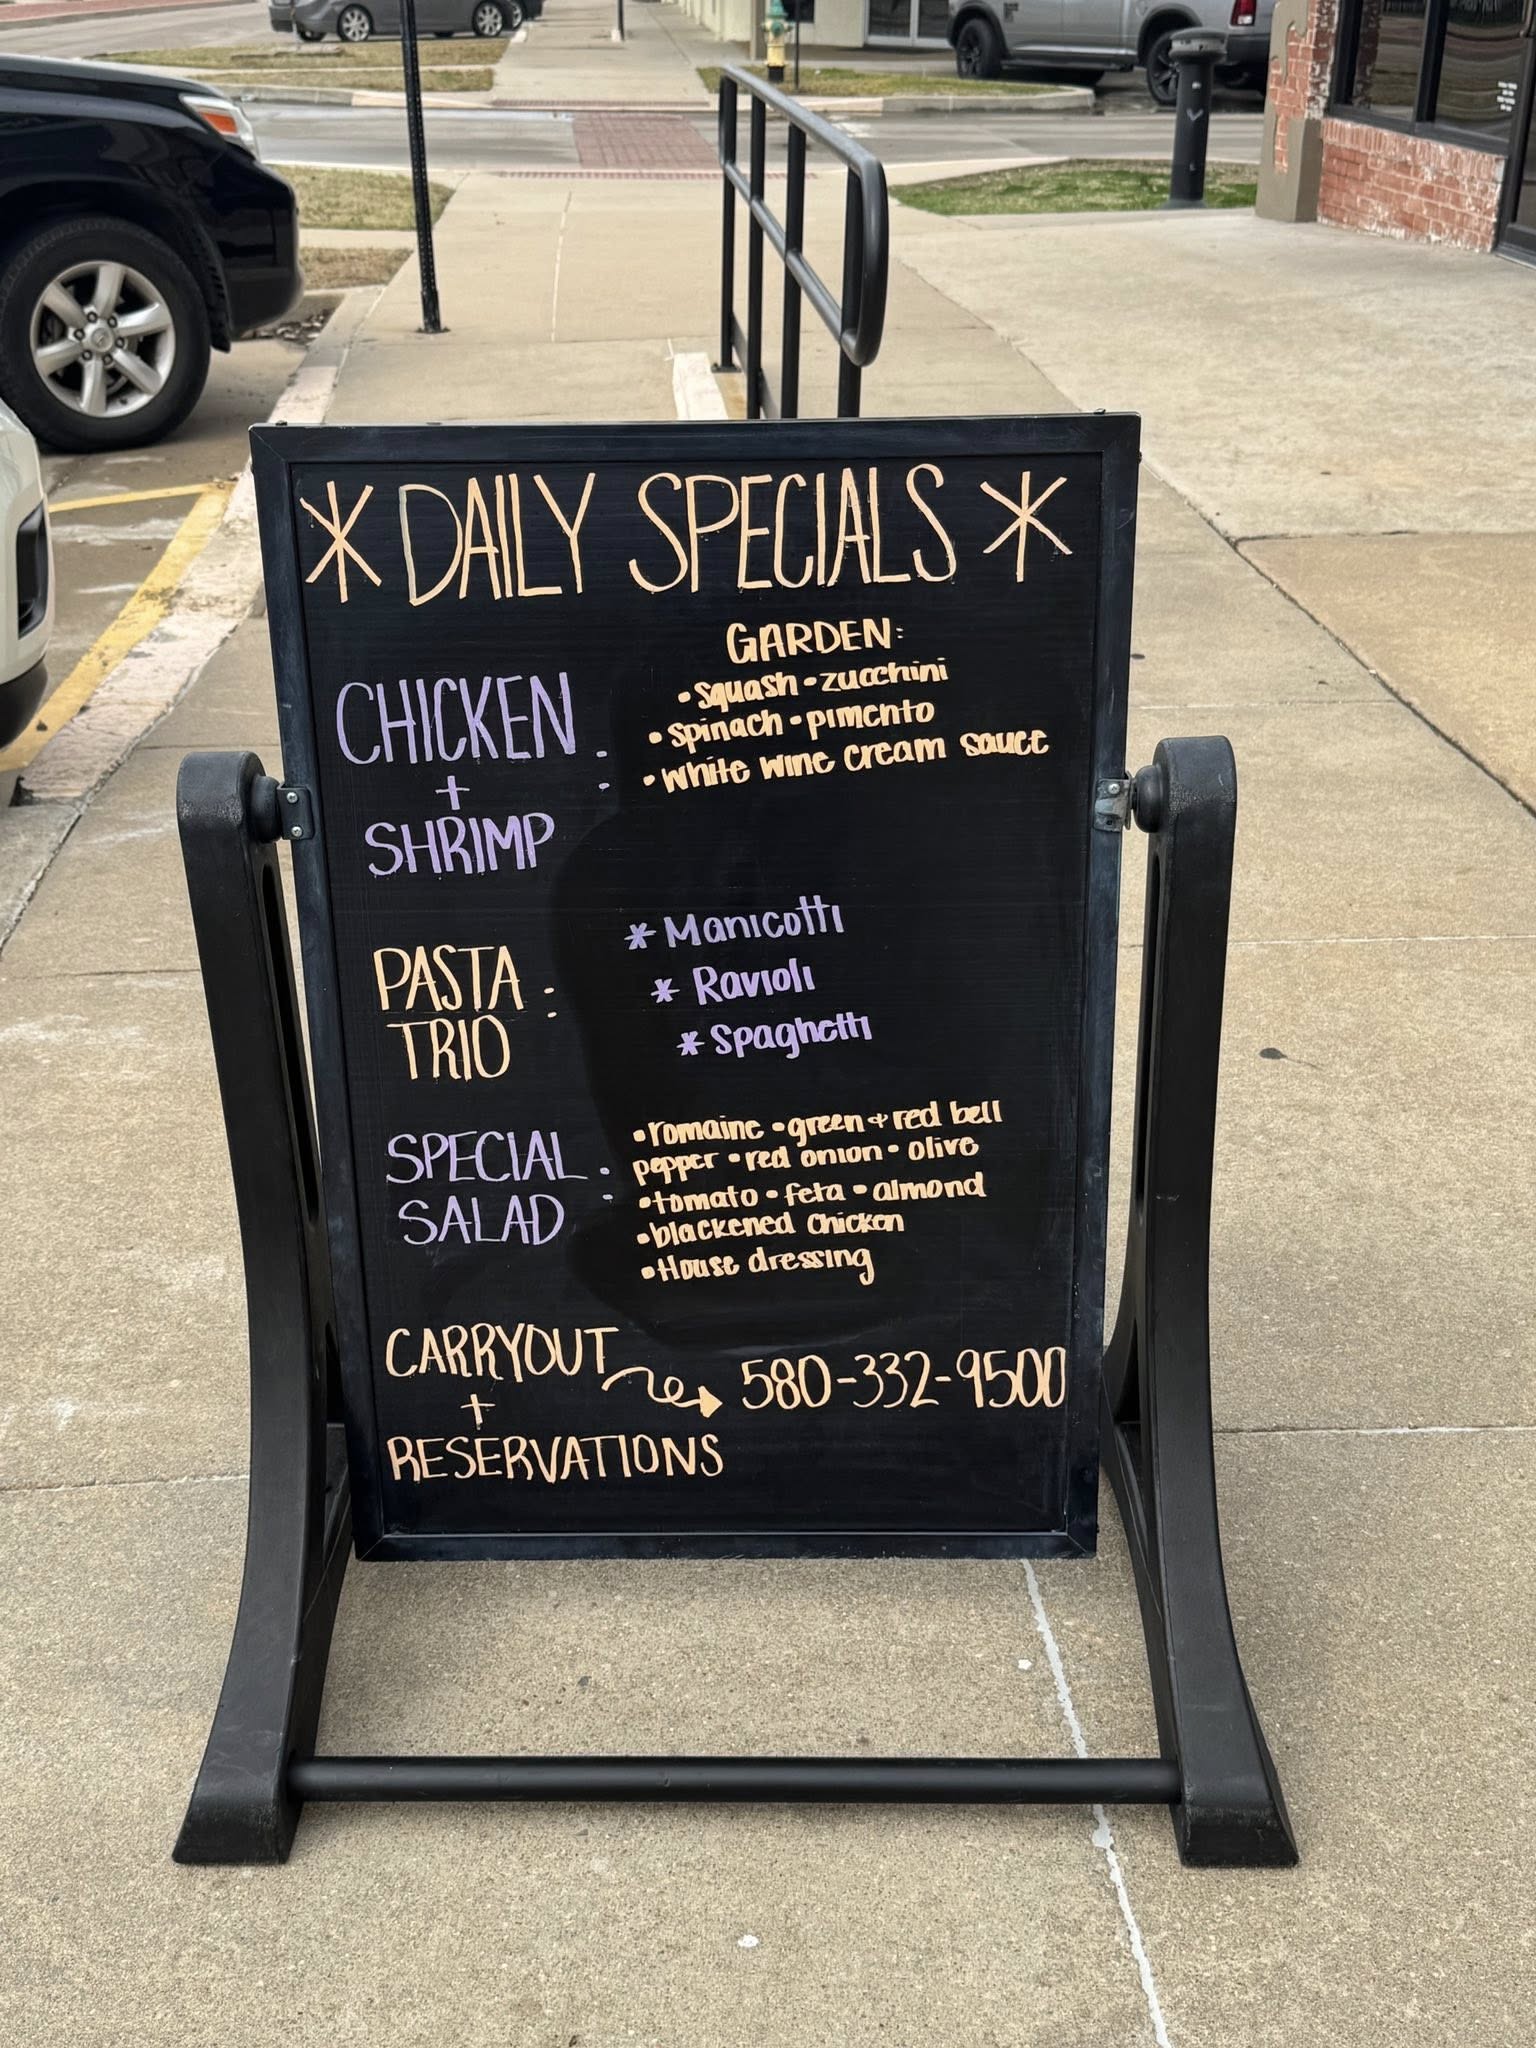 * DAILY SPECIALS *
CHICKEN
+
SHRIMP :
GARDEN:
• squash • zucchini
• spinach • pimento
• white wine cream sauce
PASTA
TRIO :
* Manicotti
* Ravioli
* Spaghetti
SPECIAL
SALAD :
• romaine • green + red bell
pepper • red onion • olive
• tomato • feta • almond
• blackened chicken
• House dressing
CARRYOUT
+
RESERVATIONS
580-332-9500